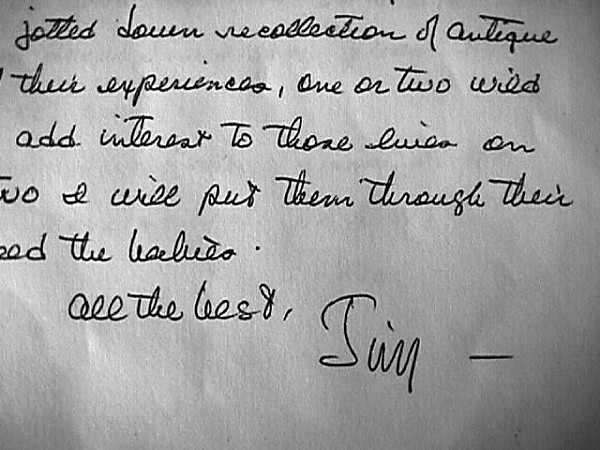 jotted down recollection of antique
their experiences, one or two wild
add interest to those lives on
I will put them through their
the babies.
All the best,
Jim —